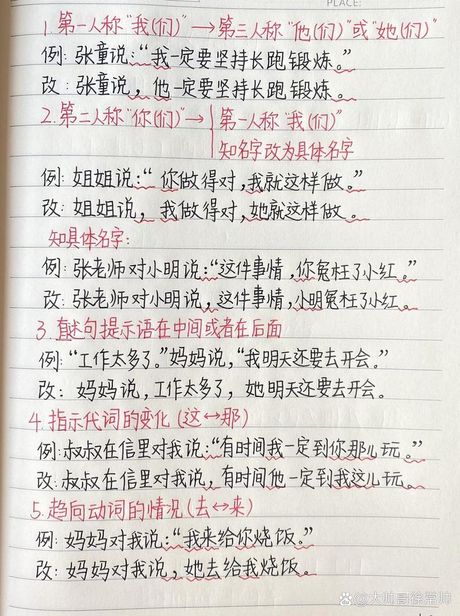 PLACE:
1.第一人称"我(们)"→第三人称"他(们)"或"她(们)"
例:张童说:"我一定要坚持长跑锻炼。"
改:张童说,他一定要坚持长跑锻炼。
2.第二人称"你(们)"→{第一人称"我(们)"
知名字改为具体名字
例:姐姐说:"你做得对,我就这样做。"
改:姐姐说,我做得对,她就这样做。
知具体名字:
例:张老师对小明说:"这件事情,你冤枉了小红。"
改:张老师对小明说,这件事情,小明冤枉了小红。
3.直述句提示语在中间或者在后面
例:"工作太多了。"妈妈说,"我明天还要去开会。"
改:妈妈说,工作太多了,她明天还要去开会。
4.指示代词的变化(这↔那)
例:叔叔在信里对我说:"有时间我一定到你那儿玩。"
改:叔叔在信里对我说,有时间他一定到我这儿玩。
5.趋向动词的情况(去↔来)
例:妈妈对我说:"我来给你烧饭。"
改:妈妈对我说,她去给我烧饭。